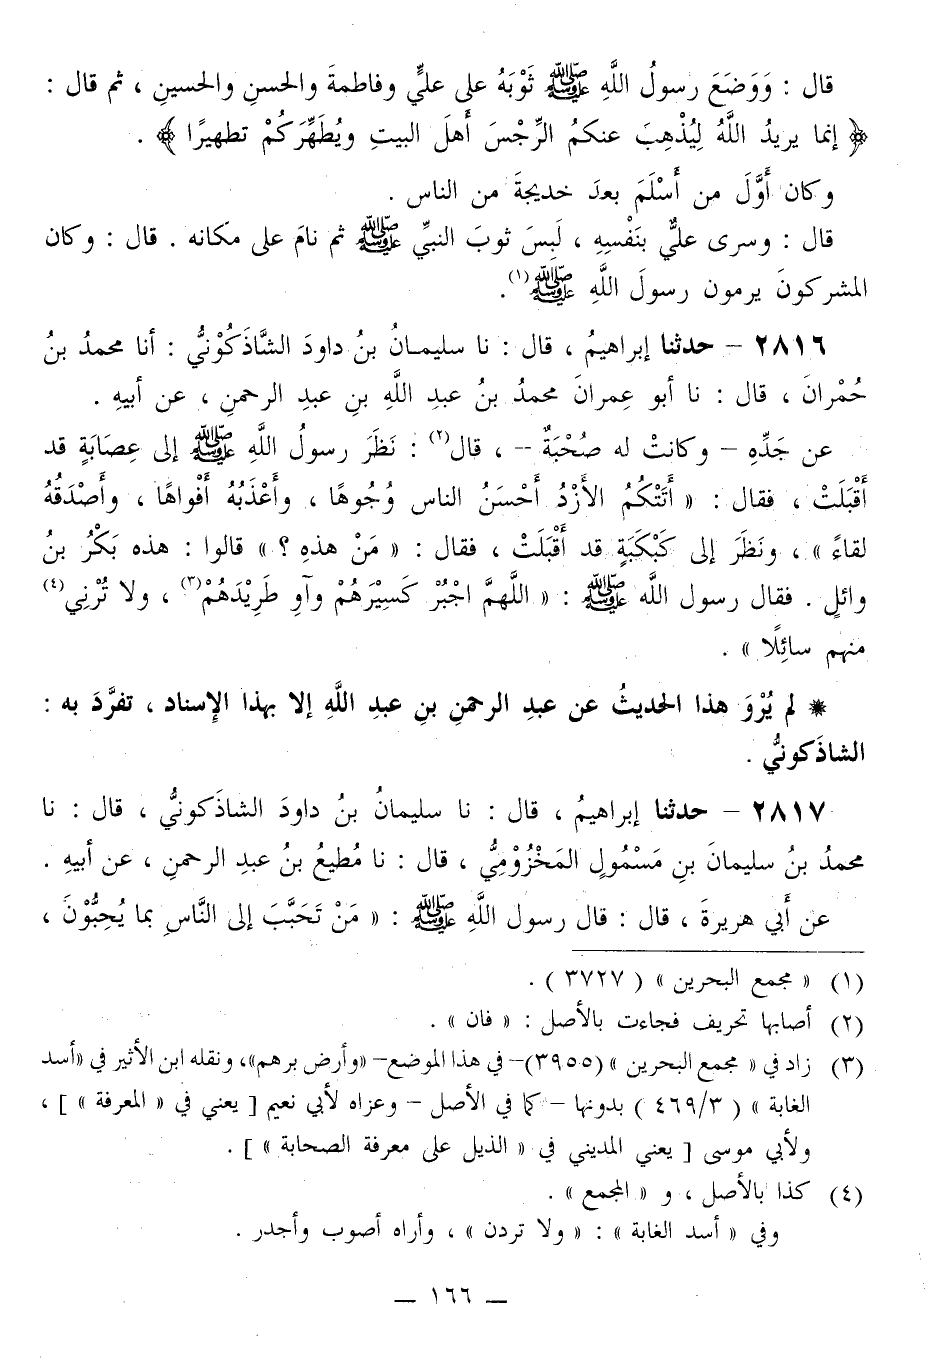 قال : وَوَضَعَ رسولُ اللَّهِ ﷺ ثَوْبَهُ على عليٍّ وفاطمةَ والحسنِ والحسينِ ، ثم قال :
﴿ إنما يريدُ اللَّهُ لِيُذْهِبَ عنكمُ الرِّجْسَ أَهلَ البيتِ ويُطَهِّرَكُمْ تطهيرًا ﴾ .
وكان أَوَّلَ من أَسْلَمَ بعدَ خديجةَ من الناس .
قال : وسرى عليٌّ بنَفْسِهِ ، لَبِسَ ثوبَ النبيِّ ﷺ ثم نامَ على مكانه . قال : وكان
المشركونَ يرمون رسولَ اللَّهِ ﷺ(١).
٢٨١٦ – حدثنا إبراهيمُ ، قال : نا سليمانُ بنُ داودَ الشَّاذَكُونيُّ : أنا محمدُ بنُ
حُمْرانَ ، قال : نا أبو عِمرانَ محمدُ بنُ عبدِ اللَّهِ بنِ عبدِ الرحمنِ ، عن أبيهِ .
عن جَدِّهِ – وكانتْ له صُحْبَةٌ – ، قال(٢) : نَظَرَ رسولُ اللَّهِ ﷺ إلى عِصَابَةٍ قد
أَقْبَلَتْ ، فقال : « أَتَتْكُمُ الأَزْدُ أَحْسَنُ الناس وُجُوهًا ، وأَعْذَبُهُ أَفْواهًا ، وأَصْدَقُهُ
لقاءً » ، ونَظَرَ إلى كَبْكَبَةٍ قد أَقْبَلَتْ ، فقال : « مَنْ هذهِ ؟ » قالوا : هذه بَكْرُ بنُ
وائلٍ . فقال رسول الله ﷺ : « اللَّهمَّ اجْبُرْ كَسِيْرَهُمْ وآوِ طَرِيْدَهُمْ(٣) ، ولا تُرْنِي(٤)
منهم سائِلًا » .
✵ لم يُرْوَ هذا الحديثُ عن عبدِ الرحمنِ بنِ عبدِ اللَّهِ إلا بهذا الإسناد ، تفرَّدَ به :
الشاذَكونيُّ .
٢٨١٧ – حدثنا إبراهيمُ ، قال : نا سليمانُ بنُ داودَ الشاذَكونيُّ ، قال : نا
محمدُ بنُ سليمانَ بنِ مَسْمُولٍ المَخْزُوْمِيُّ ، قال : نا مُطيعُ بنُ عبدِ الرحمنِ ، عن أبيهِ .
عن أَبي هريرةَ ، قال : قال رسول اللَّهِ ﷺ : « مَنْ تَحَبَّبَ إلى النَّاسِ بما يُحِبُّوْنَ ،
(١) « مجمع البحرين » ( ٣٧٢٧ ) .
(٢) أصابها تحريف فجاءت بالأصل : « فان » .
(٣) زاد في « مجمع البحرين » (٣٩٥٥)– في هذا الموضع– «وأرض برهم»، ونقله ابن الأثير في «أسد
الغابة » ( ٤٦٩/٣ ) بدونها – كما في الأصل – وعزاه لأبي نعيم [ يعني في « المعرفة » ] ،
ولأبي موسى [ يعني المديني في « الذيل على معرفة الصحابة » ] .
(٤) كذا بالأصل ، و « المجمع » .
وفي « أسد الغابة » : « ولا تردن » ، وأراه أصوب وأجدر .
– ١٦٦ –